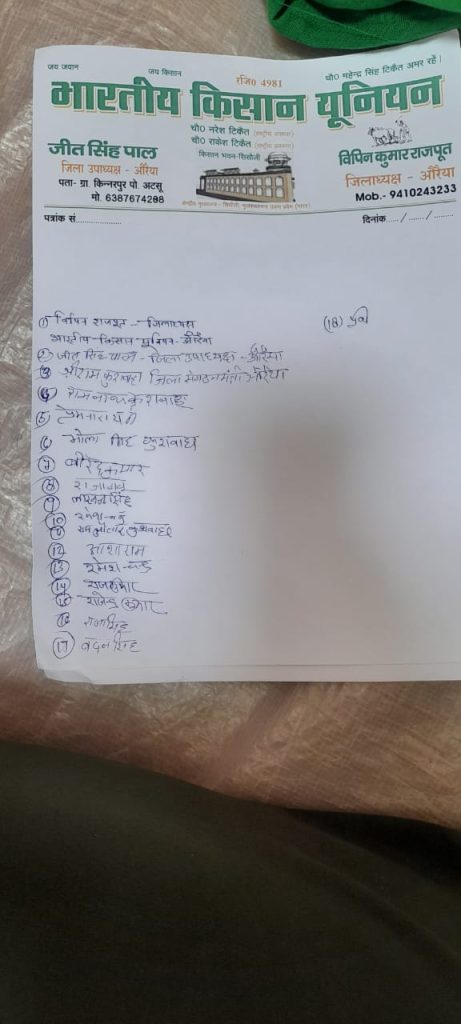 जय जवान
जय किसान
रजि0 4981
चौ0 महेन्द्र सिंह टिकैत अमर रहें।
भारतीय किसान यूनियन
चौ0 नरेश टिकैत (राष्ट्रीय अध्यक्ष)
चौ0 राकेश टिकैत (राष्ट्रीय प्रवक्ता)
किसान भवन-सिसौली
जीत सिंह पाल
जिला उपाध्यक्ष - औरैया
पता- ग्रा. किन्नरपुर पो. अटसू
मो. 6387674288
विपिन कुमार राजपूत
जिलाध्यक्ष - औरैया
Mob.- 9410243233
केन्द्रीय मुख्यालय - सिसौली, मुजफ्फरनगर उत्तर प्रदेश (भारत)
पत्रांक सं.....................
दिनांक...../....../.......
① विपिन राजपूत - जिलाध्यक्ष
भारतीय किसान यूनियन औरैया
② जीत सिंह पाल - जिला उपाध्यक्ष - औरैया
③ श्रीराम कुशवाहा जिला संगठनमंत्री औरैया
④ कुशवाह
⑤ प्रेमनारायण
⑥ भोला सिंह कुशवाह
⑦ वीरेन्द्र कुमार
⑧ राजाबाबू
⑨ सिंह
⑩
⑪ कुशवाहा
⑫ आशाराम
⑬ रमेश चन्द्र
⑭ राजकुमार
⑮ राजेन्द्र कुमार
⑯ राजसिंह
⑰ वदन सिंह
(18)